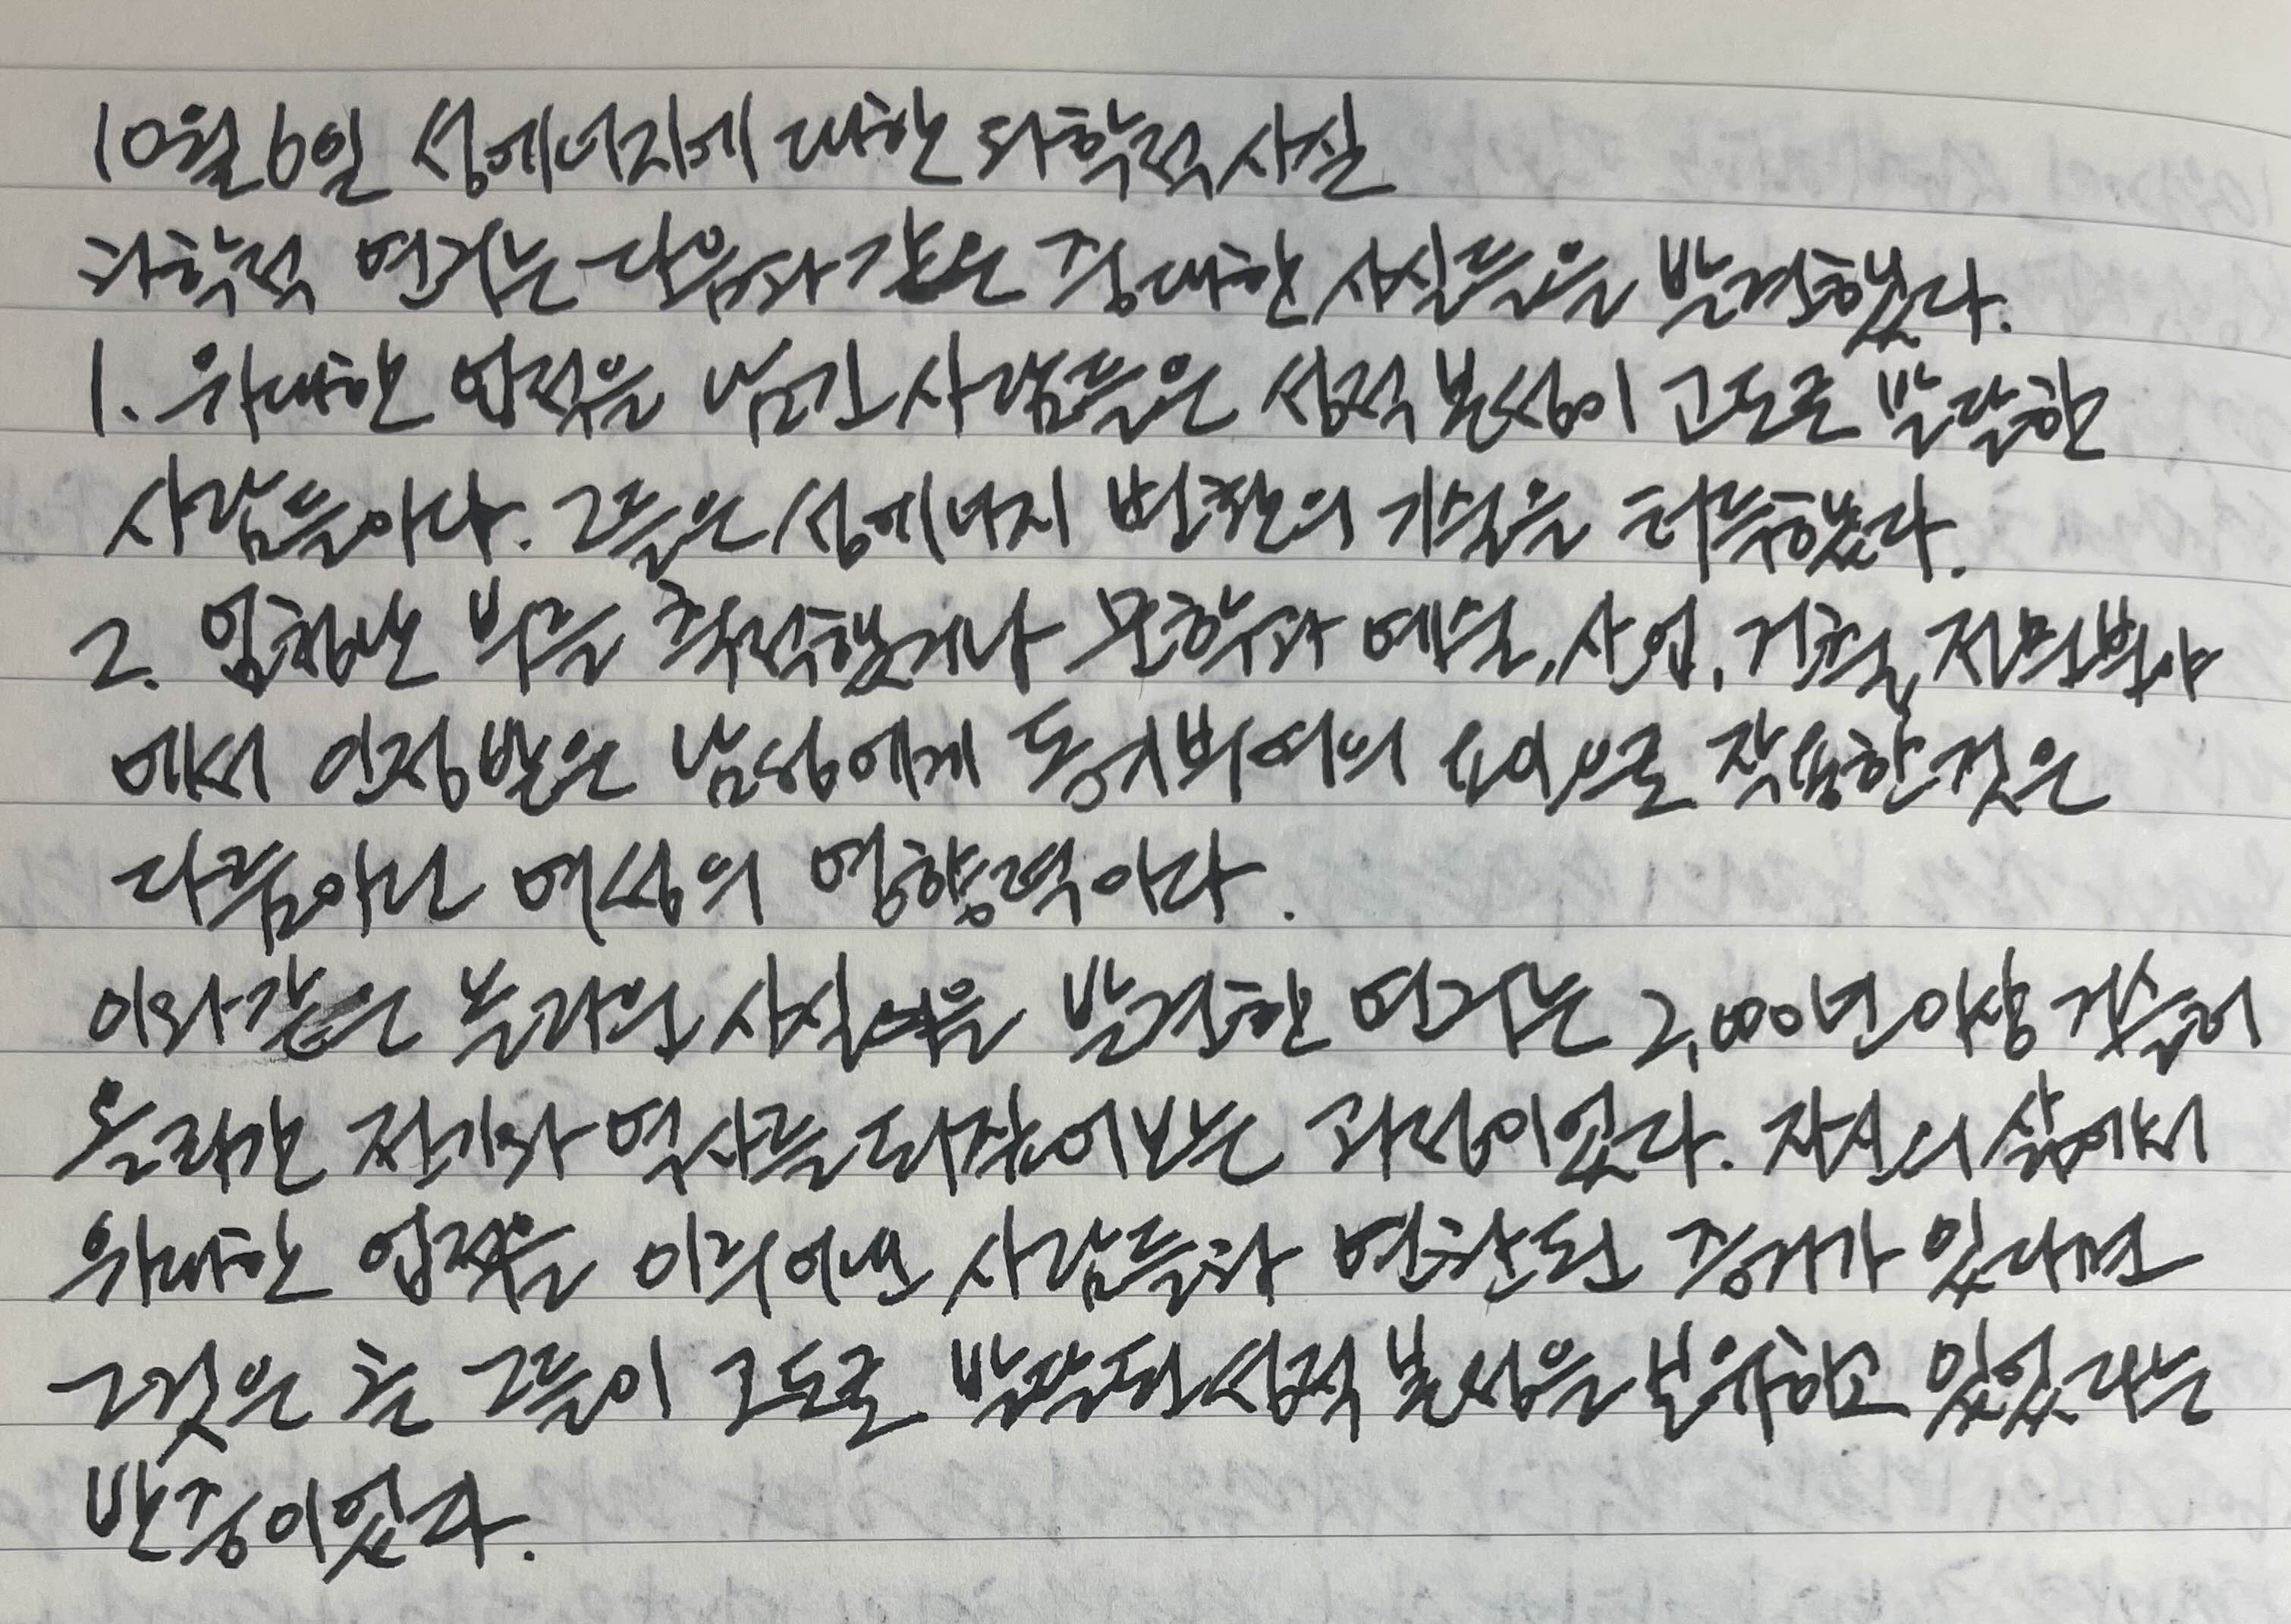 10월6일 성에너지에 대한 과학적 사실
과학적 연구는 다음과 같은 중대한 사실들을 발견했다.
1. 위대한 업적을 남긴 사람들은 성적 본성이 고도로 발달한
사람들이다. 그들은 성에너지 변환의 기술을 터득했다.
2. 엄청난 부를 축적했거나 문학과 예술, 사업, 건축, 전문분야
에서 인정받은 남성에게 동기부여의 요인으로 작용한 것은
다름아닌 여성의 영향력이다.
이와같은 놀라운 사실을 발견한 연구는 2,000년 이상 거슬러
올라간 전기와 역사를 되짚어보는 과정이었다. 자신의 삶에서
위대한 업적을 이루어낸 사람들과 연관된 증거가 있다면
그것은 곧 그들이 고도로 발달된 성적 본성을 보유하고 있었다는
반증이었다.